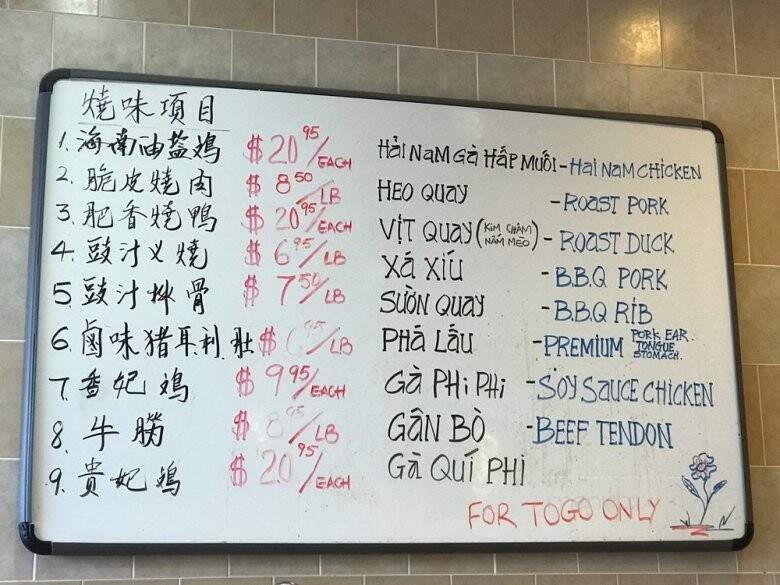 燒味項目
1. 海南油盐鸡 $20.95/EACH HẢI NAM GÀ HẤP MUỐI - HAI NAM CHICKEN
2. 脆皮燒肉 $8.50/LB HEO QUAY - ROAST PORK
3. 肥香燒鴨 $20.95/EACH VỊT QUAY (KIM CHÂM NẤM MÈO) - ROAST DUCK
4. 豉汁义燒 $6.95/LB XÁ XÍU - B.B.Q PORK
5. 豉汁排骨 $7.50/LB SƯỜN QUAY - B.B.Q RIB
6. 鹵味猪耳利肚 $6.95/LB PHÁ LẤU - PREMIUM PORK EAR TONGUE STOMACH
7. 香妃鸡 $9.95/EACH GÀ PHI PHI - SOY SAUCE CHICKEN
8. 牛 $8.95/LB GÂN BÒ - BEEF TENDON
9. 貴妃鸡 $20.95/EACH GÀ QUÍ PHI
FOR TOGO ONLY